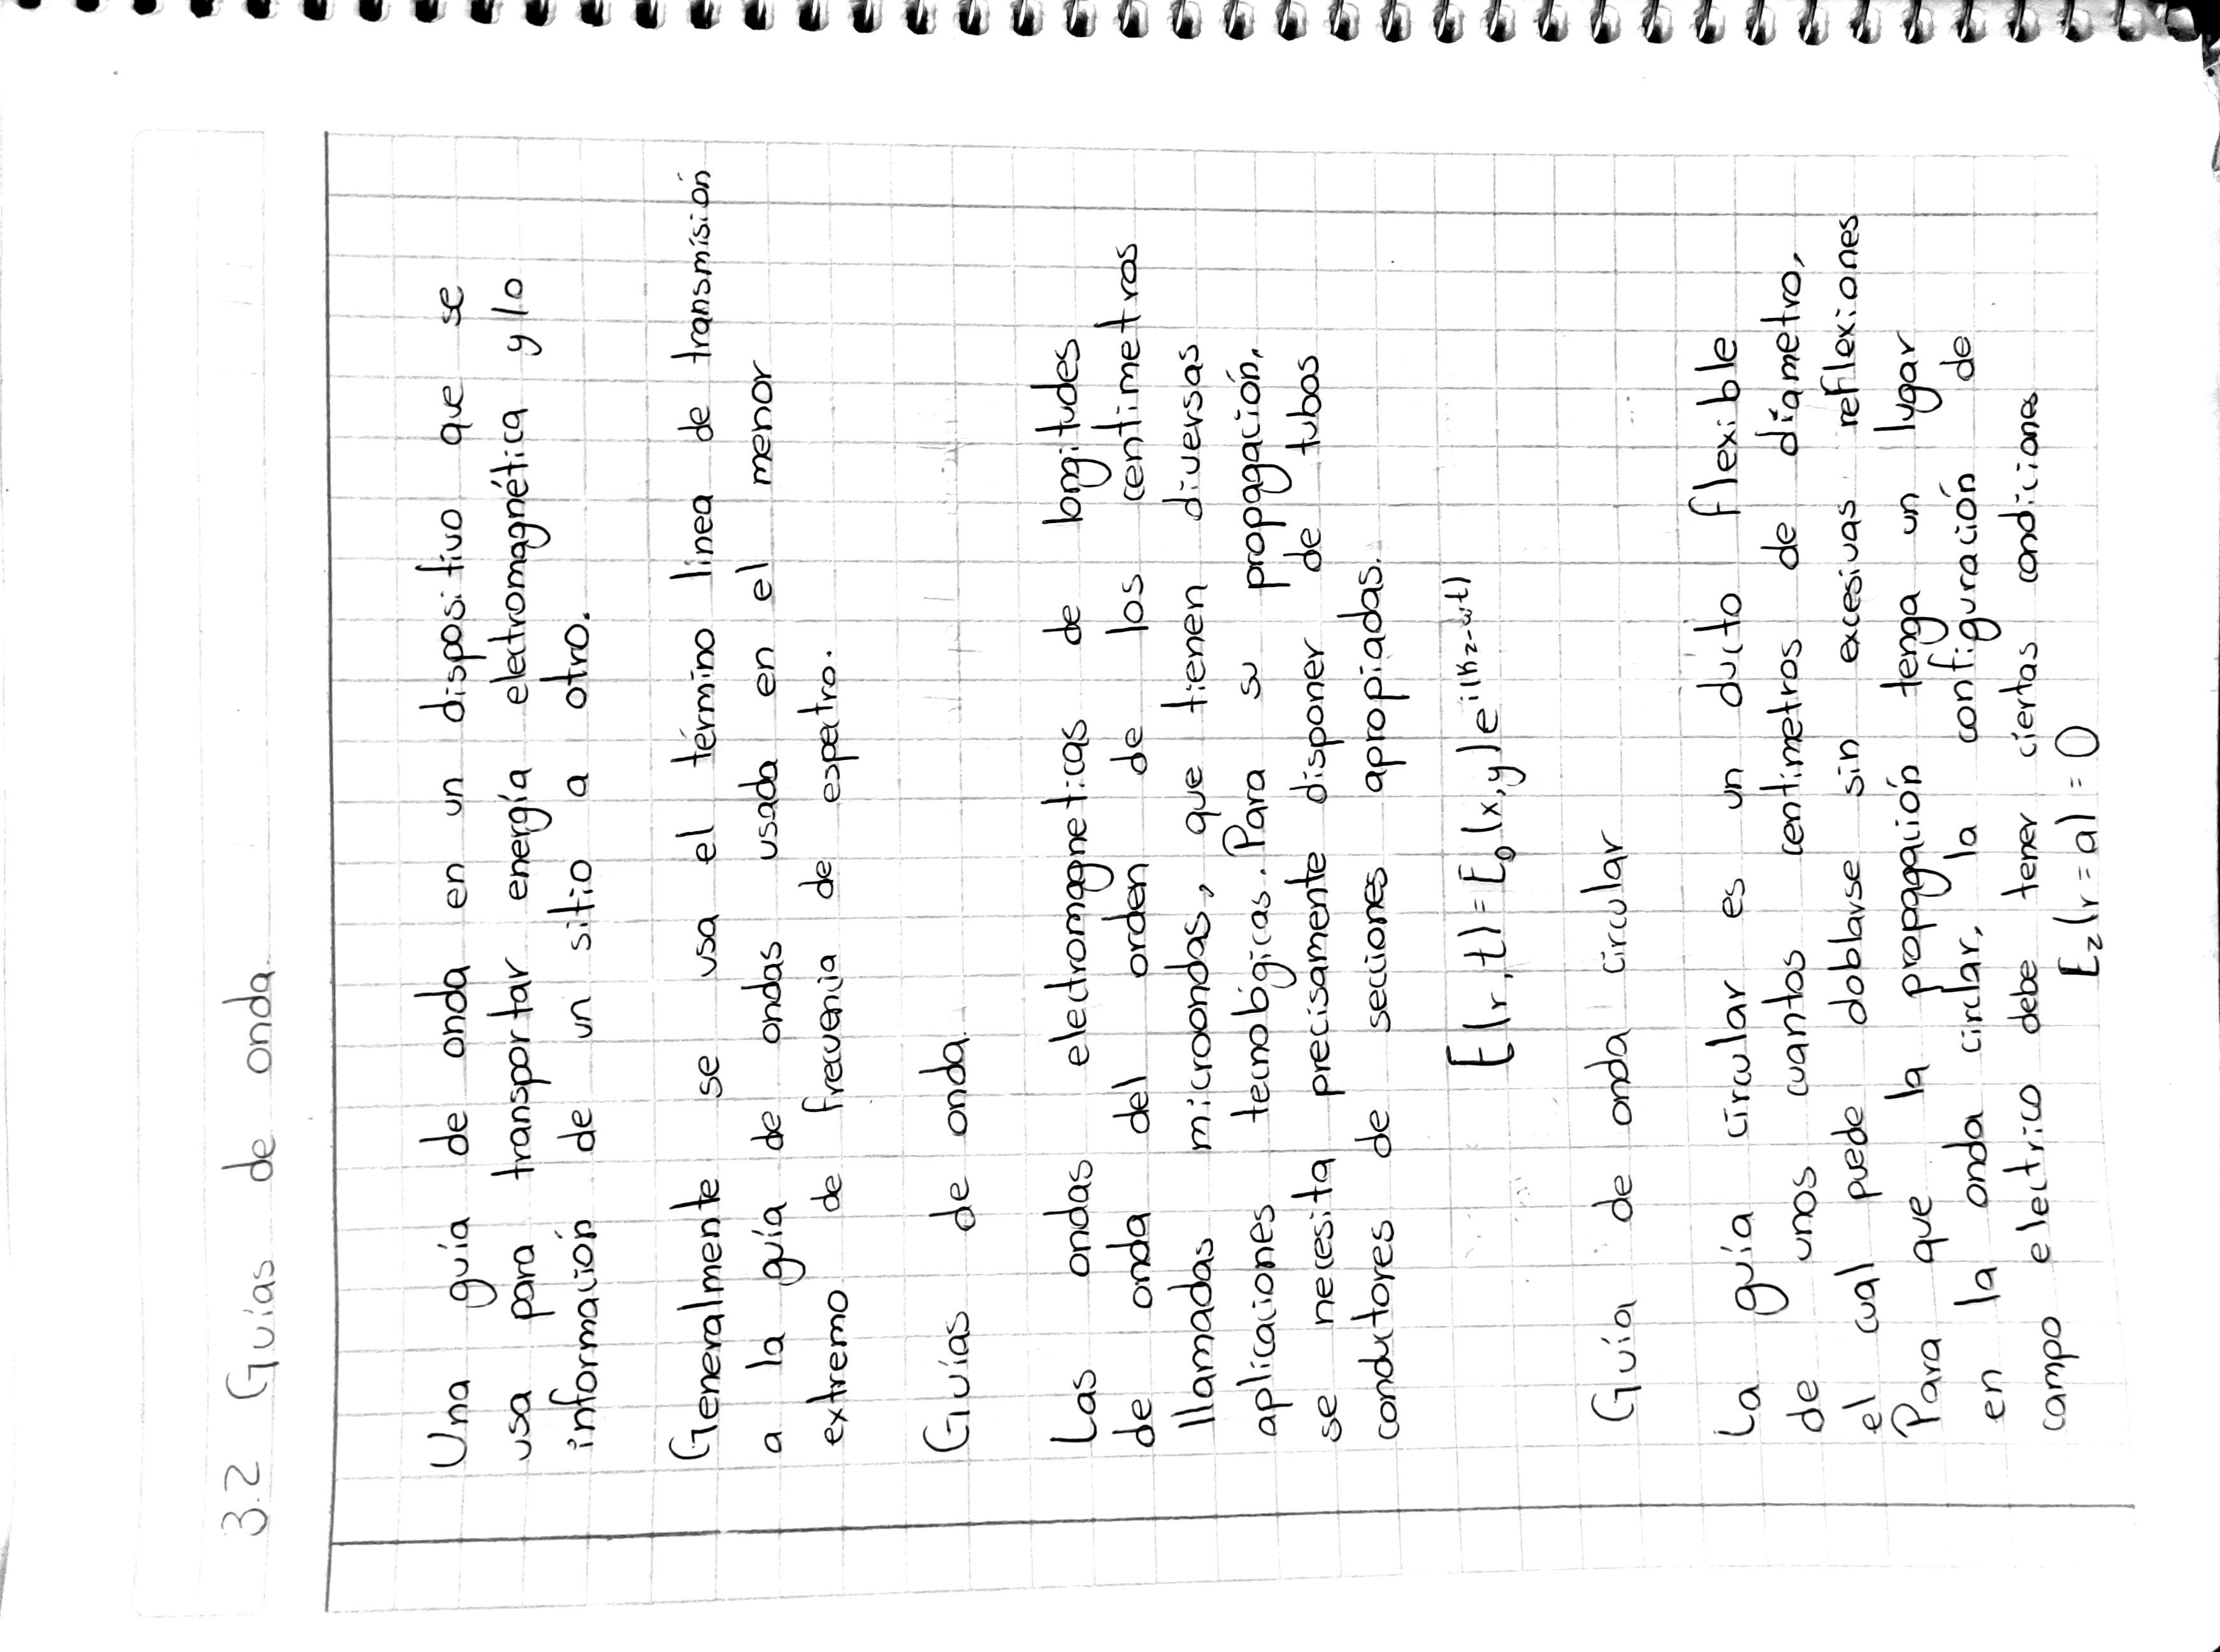 3.2 Guías de onda.
Una guía de onda en un dispositivo que se
usa para transportar energía electromagnética y/o
información de un sitio a otro.
Generalmente se usa el término linea de transmisión
a la guía de ondas usada en el menor
extremo de frecuencia de espectro.
Guías de onda.
Las ondas electromagneticas de longitudes
de onda del orden de los centimetros
llamadas microondas, que tienen diversas
aplicaciones tecnológicas. Para su propagación,
se necesita precisamente disponer de tubos
conductores de secciones apropiadas.
E(r,t)=E₀(x,y)e^{i(kz-ωt)}
Guía de onda circular
La guía circular es un ducto flexible
de unos cuantos centimetros de díametro,
el cual puede doblarse sin excesivas reflexiones
Para que la propagación tenga un lugar
en la onda circlar, la configuración de
campo electrico debe tener ciertas condiciones
E_z(r=a)=0